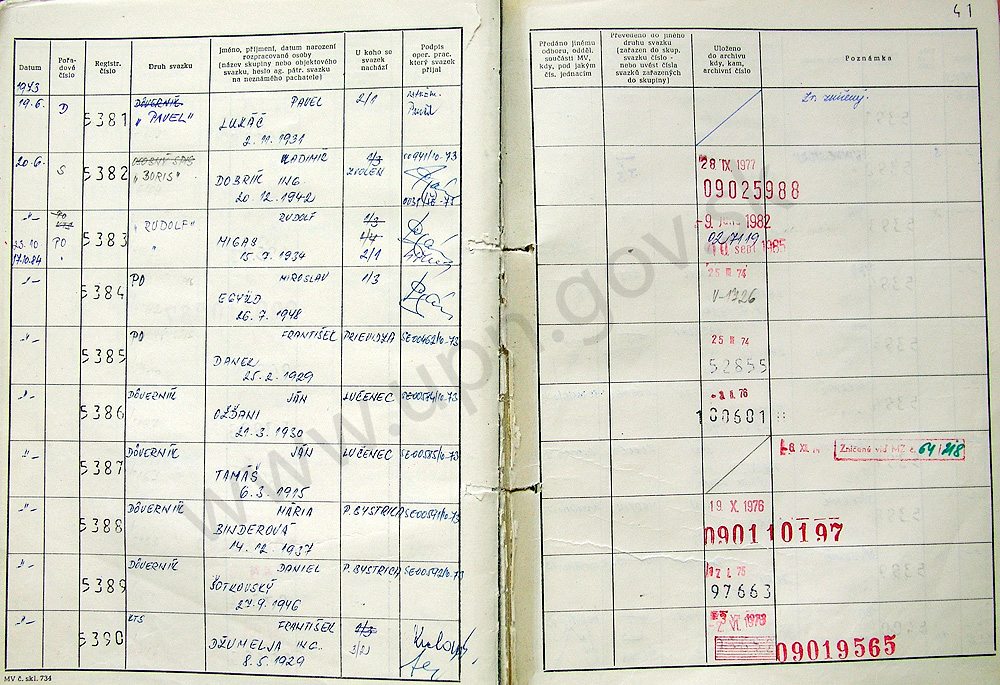 41
Datum
Pořa-
dové
číslo
Registr.
číslo
Druh svazku
Jméno, příjmení, datum narození
rozpracované osoby
(název skupiny nebo objektového
svazku, heslo ag. pátr. svazku
na neznámého pachatele)
U koho se
svazek
nachází
Podpis
oper. prac.
který svazek
přijal
Předáno jinému
odboru, odděl.
součásti MV,
kdy, pod jakým
čís. jednacím
Převedeno do jiného
druhu svazku
(zařazen do skup.
svazku číslo -
nebo uvést čísla
svazků zařazených
do skupiny)
Uloženo
do archivu
kdy, kam,
archivní číslo
Poznámka
1973
19.6. D 5381 DÔVERNÍK PAVEL 2/1
"PAVEL"
LUKÁČ
2.11.1931
20.6. S 5382 "BORIS" VLADIMÍR 1/3 00941/10-73 28 IX. 1977
DOBRÍK ING. ZVOLEN 09025988
20.12.1942
-"- PO 5383 "RUDOLF" RUDOLF 1/3 -9. 1982
25.10 PO MIGAS 1/4
17.10.84 15.7.1934 2/1
-"- 5384 PO MIROSLAV 1/3 25 III 74
V-1326
26.7.1948
-"- 5385 PO FRANTIŠEK PRIEVIDZA SE00462/10-73 25 III 74
DANEK 52855
25.2.1929
-"- 5386 DÔVERNÍK JÁN LUČENEC SE00574/10-73
OŽĎANI 100601
21.3.1930
-"- 5387 DÔVERNÍK JÁN LUČENEC SE00585/10-73 Zničené viď MZ č. 64/218
TAMÁŠ
6.3.1915
-"- 5388 DÔVERNÍK MÁRIA P. BYSTRICA SE00591/10-73 19. X. 1976
BINDEROVÁ 090110197
14.12.1937
-"- 5389 DÔVERNÍK DANIEL P. BYSTRICA SE00592/10-73
ŠOTKOVSKÝ 97663
27.9.1946
-"- 5390 KTS FRANTIŠEK 1/3
DŽUMELJA ING. 09019565
8.5.1929
MV č. skl. 734
www.upn.gov.sk